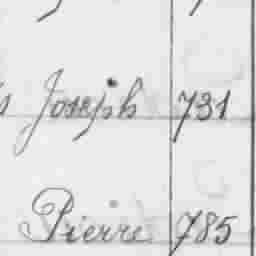 Joseph 731
Pierre 785